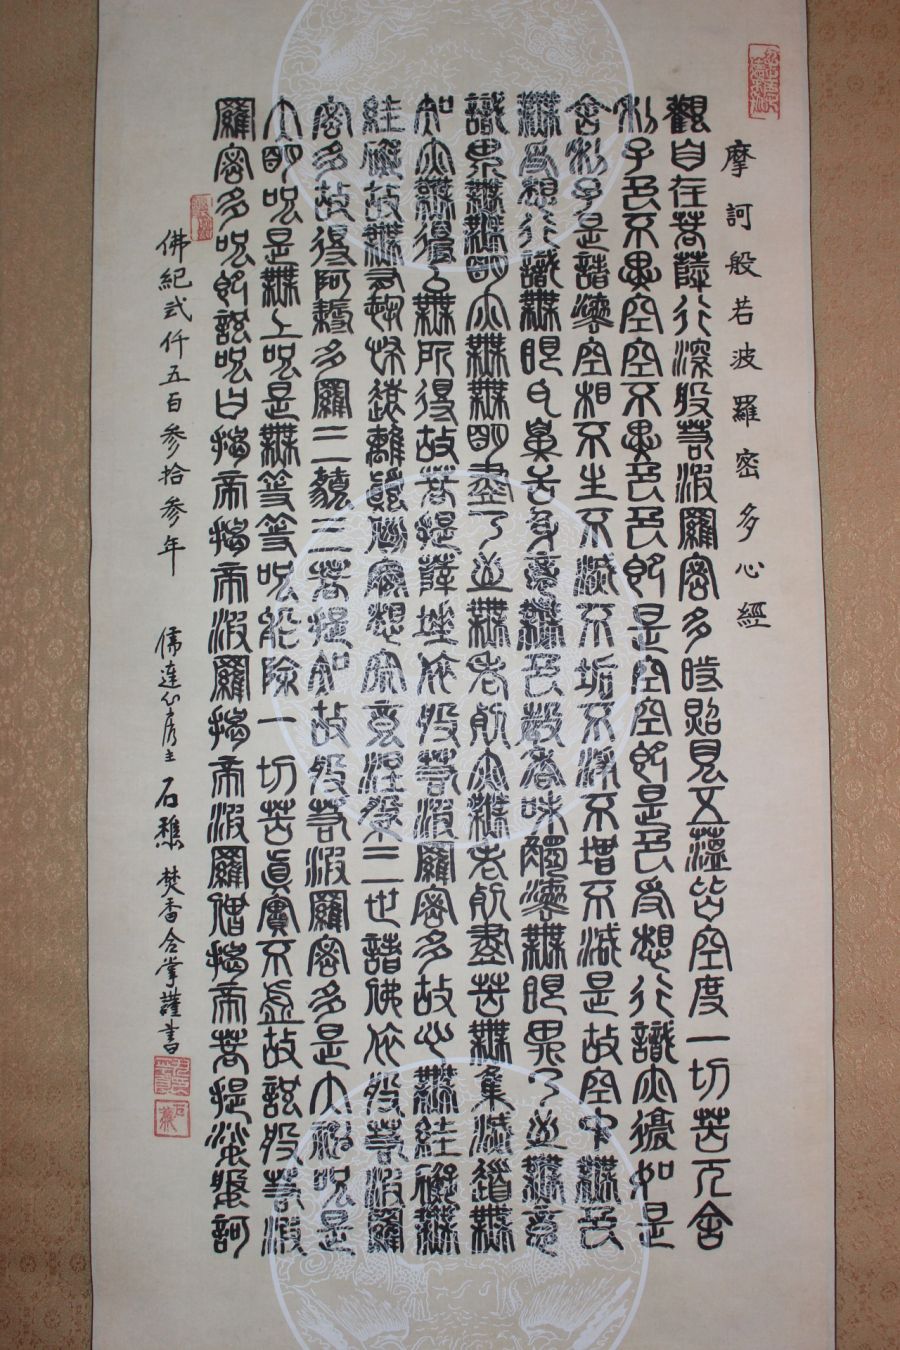 摩訶般若波羅密多心經
觀自在菩薩行深般若波羅密多時照見五蘊皆空度一切苦厄舍
利子色不異空空不異色色即是空空即是色受想行識亦復如是
舍利子是諸法空相不生不滅不垢不淨不增不減是故空中無色
無受想行識無眼耳鼻舌身意無色聲香味觸法無眼界乃至無意
識界無無明亦無無明盡乃至無老死亦無老死盡苦無集滅道無
知亦無得以無所得故菩提薩埵依般若波羅密多故心無罣礙無
罣礙故無有恐怖遠離顛倒夢想究竟涅槃三世諸佛依般若波羅
密多故得阿耨多羅三藐三菩提知故般若波羅密多是大神咒是
大明咒是無上咒是無等等咒能除一切苦真實不虛故說般若波
羅密多咒即說咒曰揭帝揭帝波羅揭帝波羅僧揭帝菩提娑婆訶
佛紀弍仟五百参拾参年 石 焚香合掌謹書